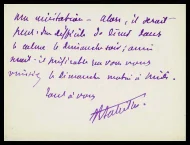 invitation - alors, il serait
peut-être difficile de dîner dans
le calme le dimanche soir, ainsi
vaut-il préférable que vous
veniez le dimanche matin à midi.
Tout à vous